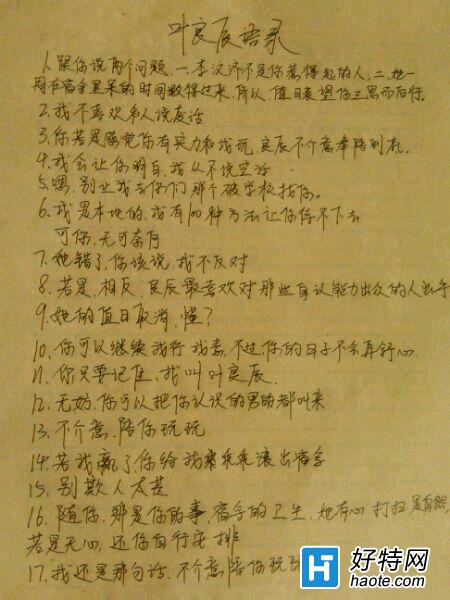 叶良辰语录
1.跟你说两个问题,一,李汶济不是你惹得起的人,二,她一
周在宿舍里呆的时间数得过来,所以,值日表望你三思而后行。
2.我不喜欢和人说废话
3.你若是感觉你有实力和我玩,良辰不介意奉陪到底。
4.我会让你明白,我从不说空话
5.嘿,别让我去你们那个破学校找你。
6.我是本地的,我有100种方法让你待不下去
可你,无可奈何
7.她错了,你该说,我不反对
8.若是,相反,良辰最喜欢对那些自认能力出众的人出手
9.她的值日取消,懂?
10.你可以继续我行我素,不过,你的日子不会再舒心
11.你只要记住,我叫叶良辰
12.无妨,你可以把你认识的男的都叫来
13.不介意,陪你玩玩
14.若我赢了,你给我乖乖滚出宿舍
15.别欺人太甚
16.随你,那是你的事,宿舍的卫生,她有心打扫是自然,
若是无心,还你自行安排
17.我还是那句话,不介意陪你玩玩
好特网
haote.com